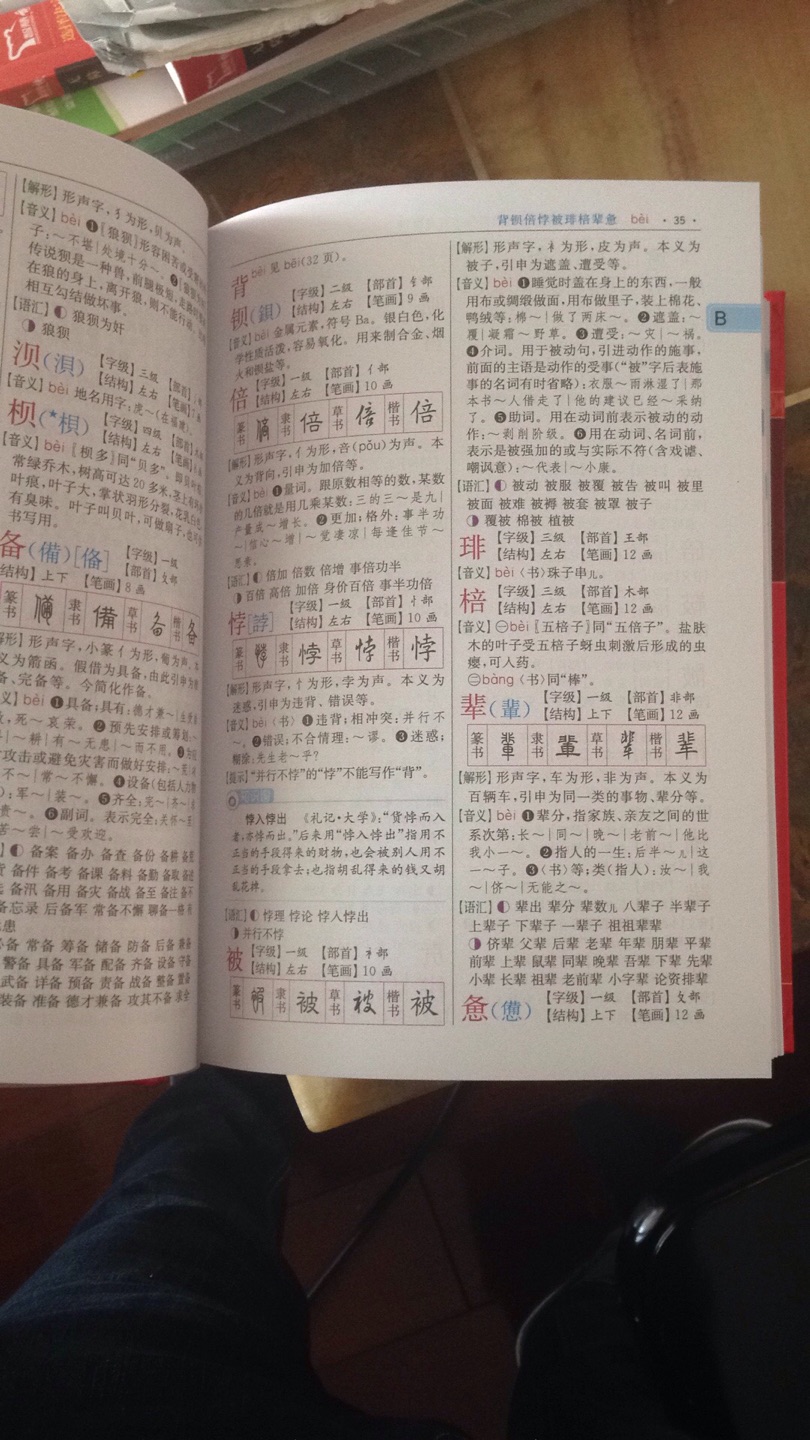 【解形】形声字，犭为形，贝为声。
【音义】bèi ❶〖狼狈〗形容困苦或受窘的样
子：～不堪｜处境十分～。
传说狈是一种兽，前腿极短，
在狼的身上，离开狼，则不能行动，
相互勾结做坏事。
【语汇】◐ 狼狈为奸
◑ 狼狈
浿(浿) 【字级】三级 【部首】
【结构】左右 【笔画】
【音义】bèi 地名用字：虎～(在福建)。
梖(*梖) 【字级】四级 【部首】木
【结构】左右 【笔画】
【音义】bèi 〖梖多〗同“贝多”，
常绿乔木，树高可达20多米，茎上有
叶痕，叶子大，掌状羽形分裂，花乳白色，
有臭味。叶子叫贝叶，可做扇子，
书写用。
备(備)[俻] 【字级】一级
【部首】夂部
【结构】上下 【笔画】8画
篆书 備 隶书 備 草书 备 楷书 备
形声字，小篆亻为形，𤰇为声。
义为箭函。假借为具备，由此引申为
备、完备等。今简化作备。
bèi ❶具备；具有：德才兼～｜
死～哀荣。❷预先安排或筹划：
～耕｜有～无患｜～而不用。
攻击或避免灾害而做好安排：
不～｜常～不懈。❹设备(包括人力物
)：军～｜装～。❺齐全：完～｜齐～｜
责～。❻副词。表示完全：关怀～至
苦～尝｜～受欢迎。
◐ 备案 备办 备查 备份 备耕
备件 备考 备课 备料 备勤 备取
备汛 备用 备灾 备战 备至 备注
备忘录 后备军 常备不懈 聊备一格
患
常备 筹备 储备 防备 后备 兼备
警备 具备 军备 配备 齐备 设备 守备
武备 详备 预备 责备 战备 整备 置备
装备 准备 德才兼备 攻其不备 求全
背钡倍悖被琲棓辈惫 bèi ·35·
背 bèi 见 bēi(32页)。
钡(鋇) 【字级】二级 【部首】钅部
【结构】左右 【笔画】9画
【音义】bèi 金属元素，符号Ba。银白色，化
学性质活泼，容易氧化。用来制合金、烟
火和钡盐等。
倍 【字级】一级 【部首】亻部
【结构】左右 【笔画】10画
篆书 倍 隶书 倍 草书 倍 楷书 倍
【解形】形声字，亻为形，咅(pǒu)为声。本
义为背向，引申为加倍等。
【音义】bèi ❶量词。跟原数相等的数，某数
的几倍就是用几乘某数：三的三～是九｜
产量成～增长。❷更加；格外：事半功
～｜信心～增｜～觉凄凉｜每逢佳节～
思亲。
【语汇】◐ 倍加 倍数 倍增 事倍功半
◑ 百倍 高倍 加倍 身价百倍 事半功倍
悖[誖] 【字级】一级 【部首】忄部
【结构】左右 【笔画】10画
篆书 悖 隶书 悖 草书 悖 楷书 悖
【解形】形声字，忄为形，孛为声。本义为
迷惑，引申为违背、错误等。
【音义】bèi〈书〉❶违背；相冲突：并行不
～。❷错误；不合情理：～谬。❸迷惑；
糊涂：先生老～乎？
【提示】“并行不悖”的“悖”不能写作“背”。
悖入悖出 《礼记·大学》：“货悖而入
者，亦悖而出。”后来用“悖入悖出”指用不
正当的手段得来的财物，也会被别人用不
正当的手段拿去；也指胡乱得来的钱又胡
乱花掉。
【语汇】◐ 悖理 悖论 悖入悖出
◑ 并行不悖
被 【字级】一级 【部首】衤部
【结构】左右 【笔画】10画
篆书 被 隶书 被 草书 被 楷书 被
【解形】形声字，衤为形，皮为声。本义为
被子，引申为遮盖、遭受等。
【音义】bèi ❶睡觉时盖在身上的东西，一般
用布或绸缎做面，用布做里子，装上棉花、
鸭绒等：棉～｜做了两床～。❷遮盖：～
覆｜凝霜～野草。❸遭受：～灾｜～祸。
❹介词。用于被动句，引进动作的施事，
前面的主语是动作的受事(“被”字后表施
事的名词有时省略)：衣服～雨淋湿了｜那
本书～人借走了｜他的建议已经～采纳
了。❺助词。用在动词前表示被动的动
作：～剥削阶级。❻用在动词、名词前，
表示是被强加的或与实际不符(含戏谑、
嘲讽意)：～代表｜～小康。
【语汇】◐ 被动 被服 被覆 被告 被叫 被里
被面 被难 被褥 被套 被罩 被子
◑ 覆被 棉被 植被
琲 【字级】三级 【部首】王部
【结构】左右 【笔画】12画
【音义】bèi〈书〉珠子串儿。
棓 【字级】三级 【部首】木部
【结构】左右 【笔画】12画
【音义】㊀bèi〖五棓子〗同“五倍子”。盐肤
木的叶子受五棓子蚜虫刺激后形成的虫
瘿，可入药。
㊁bàng〈书〉同“棒”。
辈(輩) 【字级】一级 【部首】非部
【结构】上下 【笔画】12画
篆书 輩 隶书 輩 草书 辈 楷书 辈
【解形】形声字，车为形，非为声。本义为
百辆车，引申为同一类的事物、辈分等。
【音义】bèi ❶辈分，指家族、亲友之间的世
系次第：长～｜同～｜晚～｜老前～｜他比
我小一～。❷指人的一生：后半～儿｜这
一～子。❸〈书〉等；类(指人)：汝～｜我
～｜侪～｜无能之～。
【语汇】◐ 辈出 辈分 辈数儿 八辈子 半辈子
上辈子 下辈子 一辈子 祖祖辈辈
◑ 侪辈 父辈 后辈 老辈 年辈 朋辈 平辈
前辈 上辈 鼠辈 同辈 晚辈 吾辈 下辈 先辈
小辈 长辈 祖辈 老前辈 小字辈 论资排辈
惫(憊) 【字级】一级 【部首】夂部
【结构】上下 【笔画】12画
B